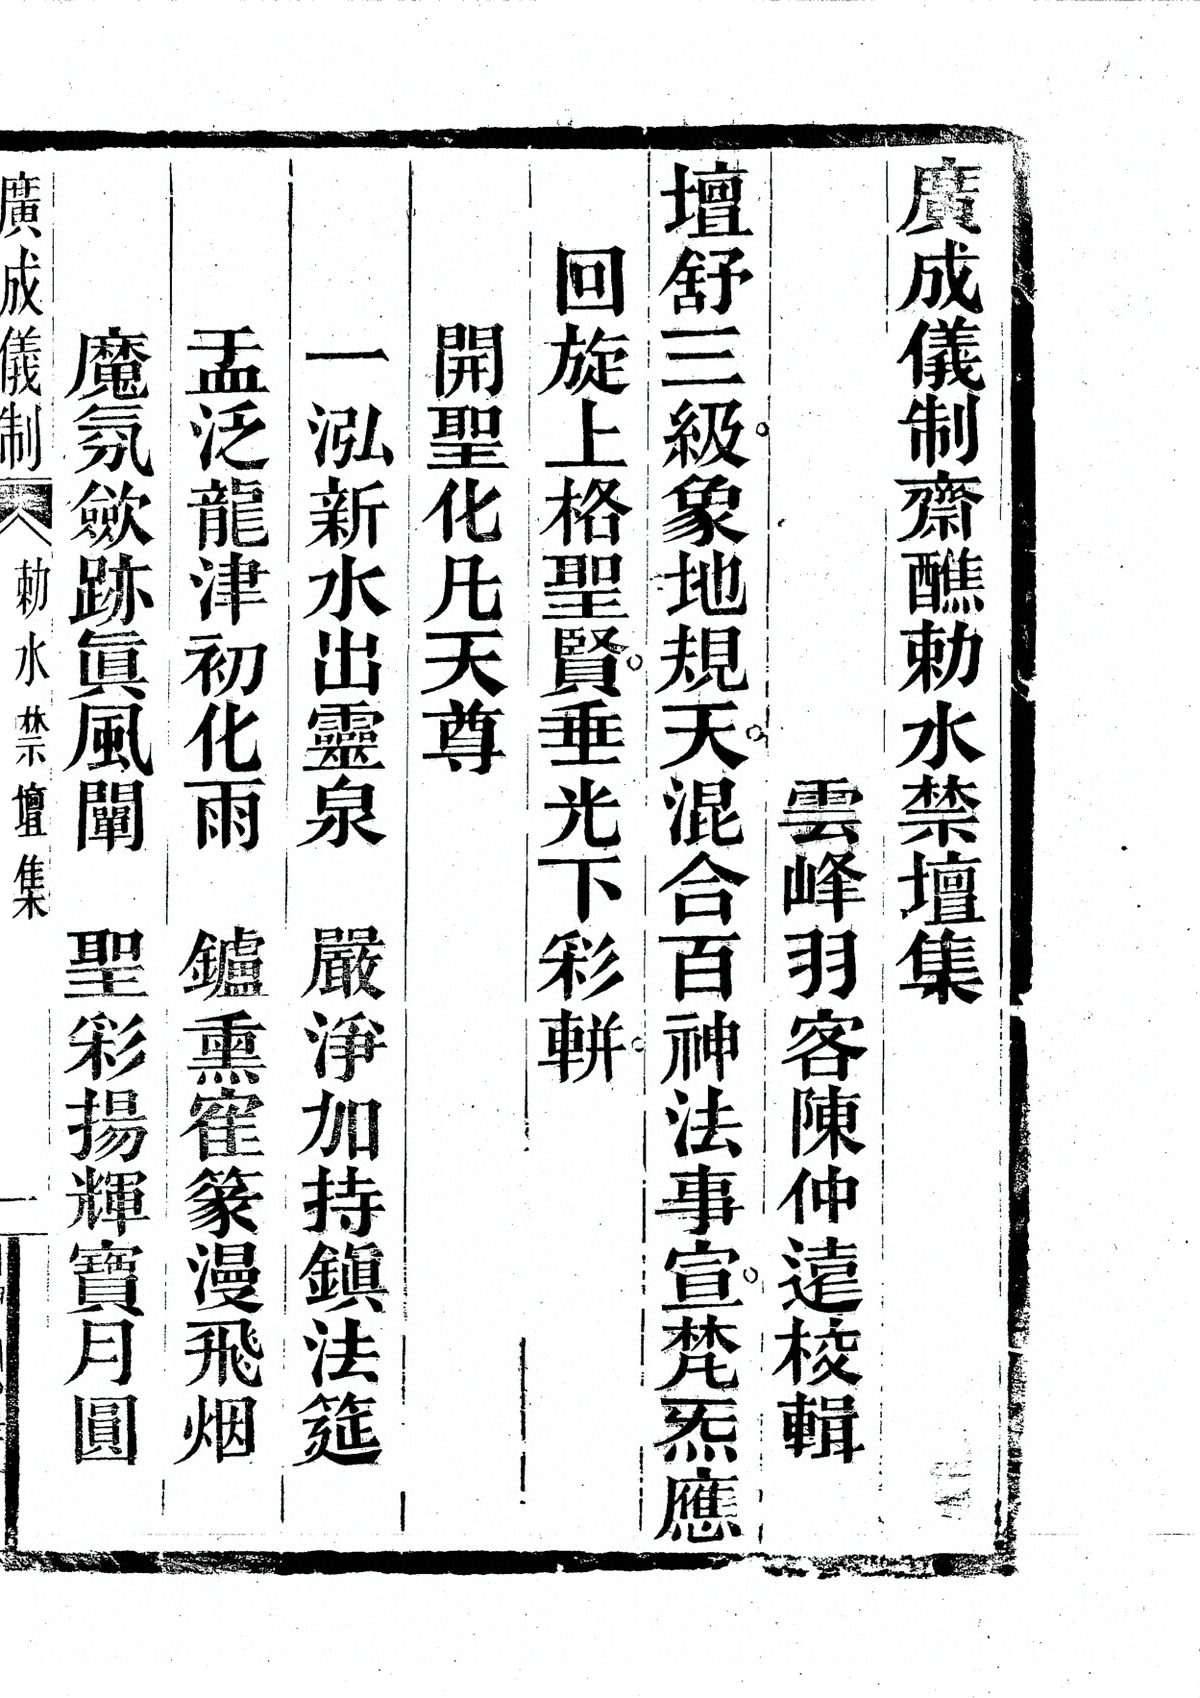 廣成儀制齋醮勅水禁壇集
雲峰羽客陳仲遠校輯
壇舒三級象地規天混合百神法事宣梵炁應
回旋上格聖賢垂光下彩軿
開聖化凡天尊
一泓新水出靈泉　嚴淨加持鎮法筵
盂泛龍津初化雨　鑪熏寉篆漫飛烟
魔氛歛跡眞風闡　聖彩揚輝寶月圓
廣成儀制　勅水禁壇集　一